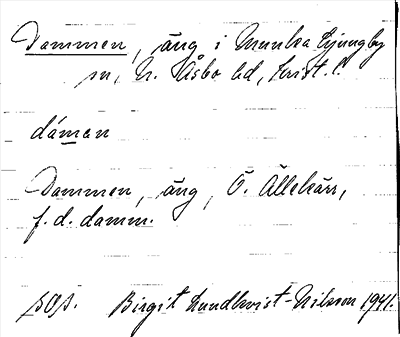 Dammen, äng i Munka Ljungby
sn, N. Åsbo hd, Krist. l.
dámen
Dammen, äng, Ö. Ällekärr,
f. d. damm.
Birgit Lundkvist-Nilsson 1941.